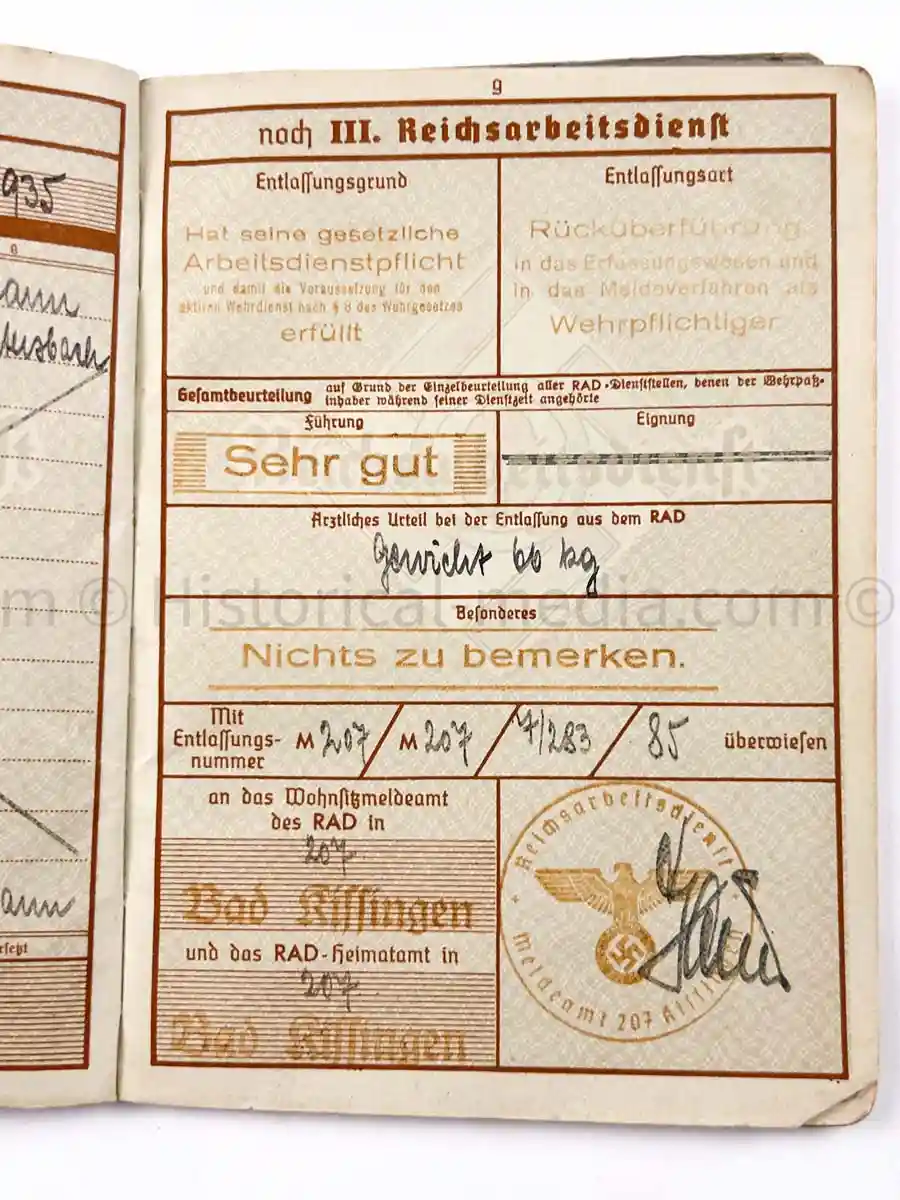 935
ann
ersetzt
9
noch III. Reichsarbeitsdienst
Entlassungsgrund
Hat seine gesetzliche
Arbeitsdienstpflicht
und damit die Voraussetzung für den
aktiven Wehrdienst nach § 8 des Wehrgesetzes
erfüllt
Entlassungsart
Rücküberführung
in das Erfassungswesen und
in das Meldeverfahren als
Wehrpflichtiger
Gesamtbeurteilung auf Grund der Einzelbeurteilung aller RAD-Dienststellen, denen der Wehrpaß-
inhaber während seiner Dienstzeit angehörte
Führung
Sehr gut
Eignung
Ärztliches Urteil bei der Entlassung aus dem RAD
Gewicht 66 kg
© Historical-media.com ©
Besonderes
Nichts zu bemerken.
Mit
Entlassungs-
nummer
M 207 / M 207 / 7/283 / 85 überwiesen
an das Wohnsitzmeldeamt
des RAD in
207
Bad Kissingen
und das RAD-Heimatamt in
207
Bad Kissingen
Reichsarbeitsdienst
Meldeamt 207
ann